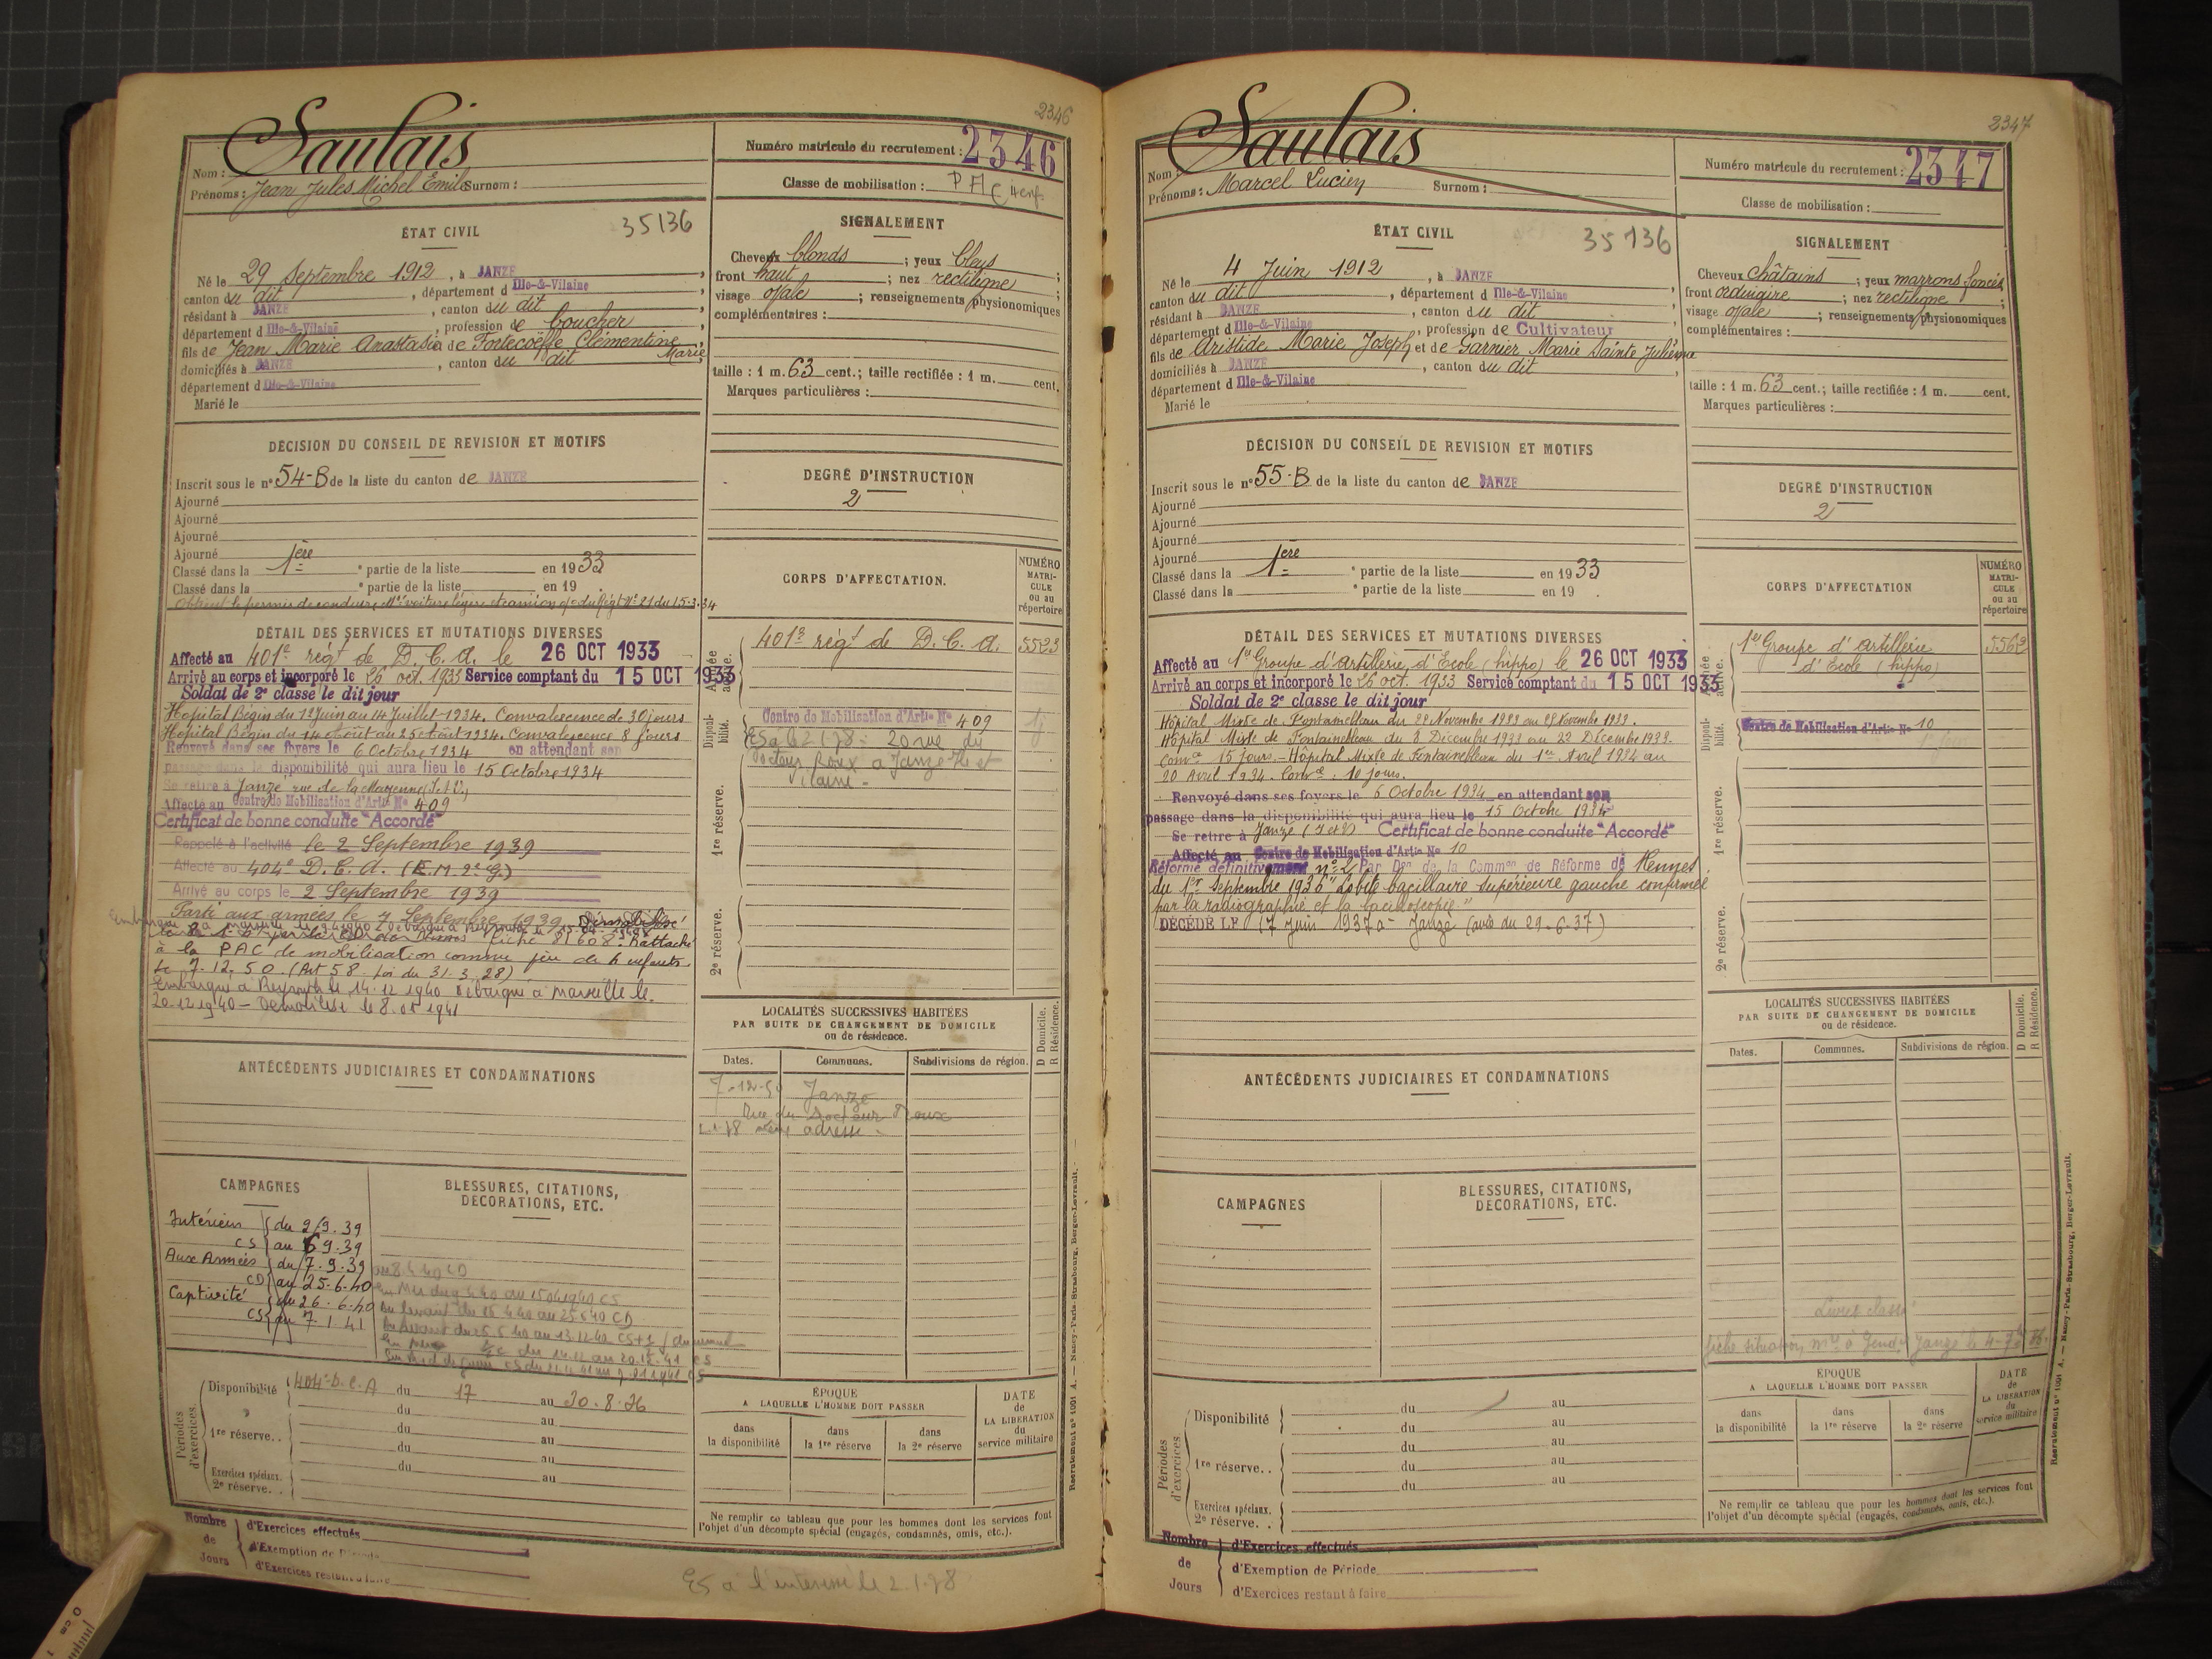 2346
Saulais
Nom :
Prénoms : Jean Jules Michel Emile Surnom :
Numéro matricule du recrutement : 2346
Classe de mobilisation : PAC 4 enf.
ÉTAT CIVIL
35136
Né le 29 Septembre 1912, à JANZE,
canton du dit, département d Ille-&-Vilaine
résidant à JANZE, canton du dit,
département d Ille-&-Vilaine, profession de boucher,
fils de Jean Marie Anastasia de Fortecoëffe Clémentine Marie,
domiciliés à JANZE, canton du dit
département d Ille-&-Vilaine
Marié le
SIGNALEMENT
Cheveux blonds ; yeux bleus ;
front haut ; nez rectiligne ;
visage ovale ; renseignements physionomiques
complémentaires :
taille : 1 m. 63 cent.; taille rectifiée : 1 m. cent.
Marques particulières :
DÉCISION DU CONSEIL DE REVISION ET MOTIFS
Inscrit sous le n° 54-B de la liste du canton de JANZE
Ajourné
Ajourné
Ajourné
Ajourné
Classé dans la 1ère partie de la liste en 1933
Classé dans la partie de la liste en 19 .
Obtient le permis de conduire Mre voiture légère et camion du Régt N° 21 du 15-3-34
DEGRÉ D'INSTRUCTION
2
CORPS D'AFFECTATION.
NUMÉRO MATRICULE ou au répertoire
401e régt de D. C. A. 5523
Armée active.
Disponibilité.
Centre de Mobilisation d'Artie N° 409
ESa le 2.1.78 : 20 rue du
Docteur Roux a Janzé Ile et
Vilaine -
1re réserve.
2e réserve.
DÉTAIL DES SERVICES ET MUTATIONS DIVERSES
Affecté au 401e régt de D. C. A. le 26 OCT 1933
Arrivé au corps et incorporé le 26 oct. 1933 Service comptant du 15 OCT 1933
Soldat de 2e classe le dit jour
Hopital Bégin du 12 Juin au 14 Juillet 1934. Convalescence de 30 jours
Hopital Bégin du 14 Août au 25 Août 1934. Convalescence 8 jours
Renvoyé dans ses foyers le 6 Octobre 1934 en attendant son
passage dans la disponibilité qui aura lieu le 15 Octobre 1934
Se retire à Janzé rue de la Mayenne (I. et V.)
Affecté au Centre de Mobilisation d'Artie N° 409
Certificat de bonne conduite "Accordé"
Rappelé à l'activité le 2 Septembre 1939
Affecté au 404e D. C. A. (E. M. 2e G.)
Arrivé au corps le 2 Septembre 1939
Parti aux armées le 7 Septembre 1939. Démobilisé
Fiche 81608 - Rattaché
à la PAC de mobilisation comme père de 4 enfants
le 7.12.50 (Art 58 loi du 31.3.28)
Embarqué à Beyrouth le 14.12 1940 Débarqué à Marseille le
20.12 1940 - Démobilisé le 8.01 1941
LOCALITÉS SUCCESSIVES HABITÉES
PAR SUITE DE CHANGEMENT DE DOMICILE
ou de résidence.
D Domicile.
R Résidence.
Dates. Communes. Subdivisions de région.
7-12-50 Janzé
Rue du Docteur Roux
2.1.78 même adresse -
ANTÉCÉDENTS JUDICIAIRES ET CONDAMNATIONS
CAMPAGNES
Intérieur du 2.9.39
CS au 6.9.39
Aux Armées du 7.9.39
CD au 25.6.40
Captivité du 26.6.40
CS au 7.1.41
BLESSURES, CITATIONS,
DÉCORATIONS, ETC.
au 8 4 40 CD
En Mer du 9 4 40 au 15 04 1940 CS
Au Levant du 16 4 40 au 25 6 40 CD
Périodes d'exercices.
Disponibilité 404e D.C.A du 17 au 30.8.36
du au
1re réserve. . du au
du au
du au
Exercices spéciaux.
2e réserve. . au
ÉPOQUE
A LAQUELLE L'HOMME DOIT PASSER
dans la disponibilité
dans la 1re réserve
dans la 2e réserve
DATE de LA LIBÉRATION du service militaire
Ne remplir ce tableau que pour les hommes dont les services font
l'objet d'un décompte spécial (engagés, condamnés, omis, etc.).
Recrutement n° 1001 A. — Nancy-Paris-Strasbourg, Berger-Levrault.
Nombre de Jours
d'Exercices effectués
d'Exemption de Période
d'Exercices restant à faire
ES a l'intéressé le 2.1.78
2347
Saulais
Nom :
Prénoms : Marcel Lucien Surnom :
Numéro matricule du recrutement : 2347
Classe de mobilisation :
ÉTAT CIVIL
35136
Né le 4 Juin 1912, à JANZE
canton du dit, département d Ille-&-Vilaine
résidant à JANZE, canton du dit
département d Ille-&-Vilaine, profession de Cultivateur
fils de Aristide Marie Joseph et de Garnier Marie Sainte Juliénne
domiciliés à JANZE, canton du dit
département d Ille-&-Vilaine
Marié le
SIGNALEMENT
Cheveux châtains ; yeux marrons foncés
front ordinaire ; nez rectiligne ;
visage ovale ; renseignements physionomiques
complémentaires :
taille : 1 m. 63 cent.; taille rectifiée : 1 m. cent.
Marques particulières :
DÉCISION DU CONSEIL DE REVISION ET MOTIFS
Inscrit sous le n° 55-B de la liste du canton de JANZE
Ajourné
Ajourné
Ajourné
Ajourné
Classé dans la 1ère partie de la liste en 1933
Classé dans la partie de la liste en 19 .
DEGRÉ D'INSTRUCTION
2
CORPS D'AFFECTATION
NUMÉRO MATRICULE ou au répertoire
1er Groupe d'Artillerie 5562
d'Ecole (hippo)
Armée active.
Disponibilité.
Centre de Mobilisation d'Artie N° 10
1re réserve.
2e réserve.
DÉTAIL DES SERVICES ET MUTATIONS DIVERSES
Affecté au 1er Groupe d'Artillerie d'Ecole (hippo) le 26 OCT 1933
Arrivé au corps et incorporé le 26 oct. 1933 Service comptant du 15 OCT 1933
Soldat de 2e classe le dit jour
Hôpital Mixte de Fontainebleau du 22 Novembre 1933 au 28 Novembre 1933.
Hôpital Mixte de Fontainebleau du 8 Décembre 1933 au 22 Décembre 1933.
Convce 15 jours. - Hôpital Mixte de Fontainebleau du 1er Avril 1934 au
20 Avril 1934. Convce. 10 jours.
Renvoyé dans ses foyers le 6 Octobre 1934 en attendant son
passage dans la disponibilité qui aura lieu le 15 Octobre 1934
Se retire à Janzé (I et V) Certificat de bonne conduite "Accordé"
Affecté au Centre de Mobilisation d'Artie N° 10
Réformé définitivement n° 2 Par Don de la Common de Réforme de Rennes
du 1er Septembre 1936 "Lobite bacillaire supérieure gauche confirmée
par la radiographie et la bacilloscopie."
DÉCÉDÉ LE 17 Juin 1937 à Janzé (avis du 29-6-37)
LOCALITÉS SUCCESSIVES HABITÉES
PAR SUITE DE CHANGEMENT DE DOMICILE
ou de résidence.
D Domicile.
R Résidence.
Dates. Communes. Subdivisions de région.
Livret classé
fiche situation mre à Gendie Janzé le 4-7bre 36.
ANTÉCÉDENTS JUDICIAIRES ET CONDAMNATIONS
CAMPAGNES
BLESSURES, CITATIONS,
DÉCORATIONS, ETC.
Périodes d'exercices
Disponibilité du au
du au
1re réserve. . du au
du au
du au
Exercices spéciaux.
2e réserve. .
ÉPOQUE
A LAQUELLE L'HOMME DOIT PASSER
dans la disponibilité
dans la 1re réserve
dans la 2e réserve
DATE de LA LIBÉRATION du service militaire
Ne remplir ce tableau que pour les hommes dont les services font
l'objet d'un décompte spécial (engagés, condamnés, omis, etc.).
Recrutement n° 1001 A. — Nancy-Paris-Strasbourg, Berger-Levrault.
Nombre de Jours
d'Exercices effectués
d'Exemption de Période
d'Exercices restant à faire